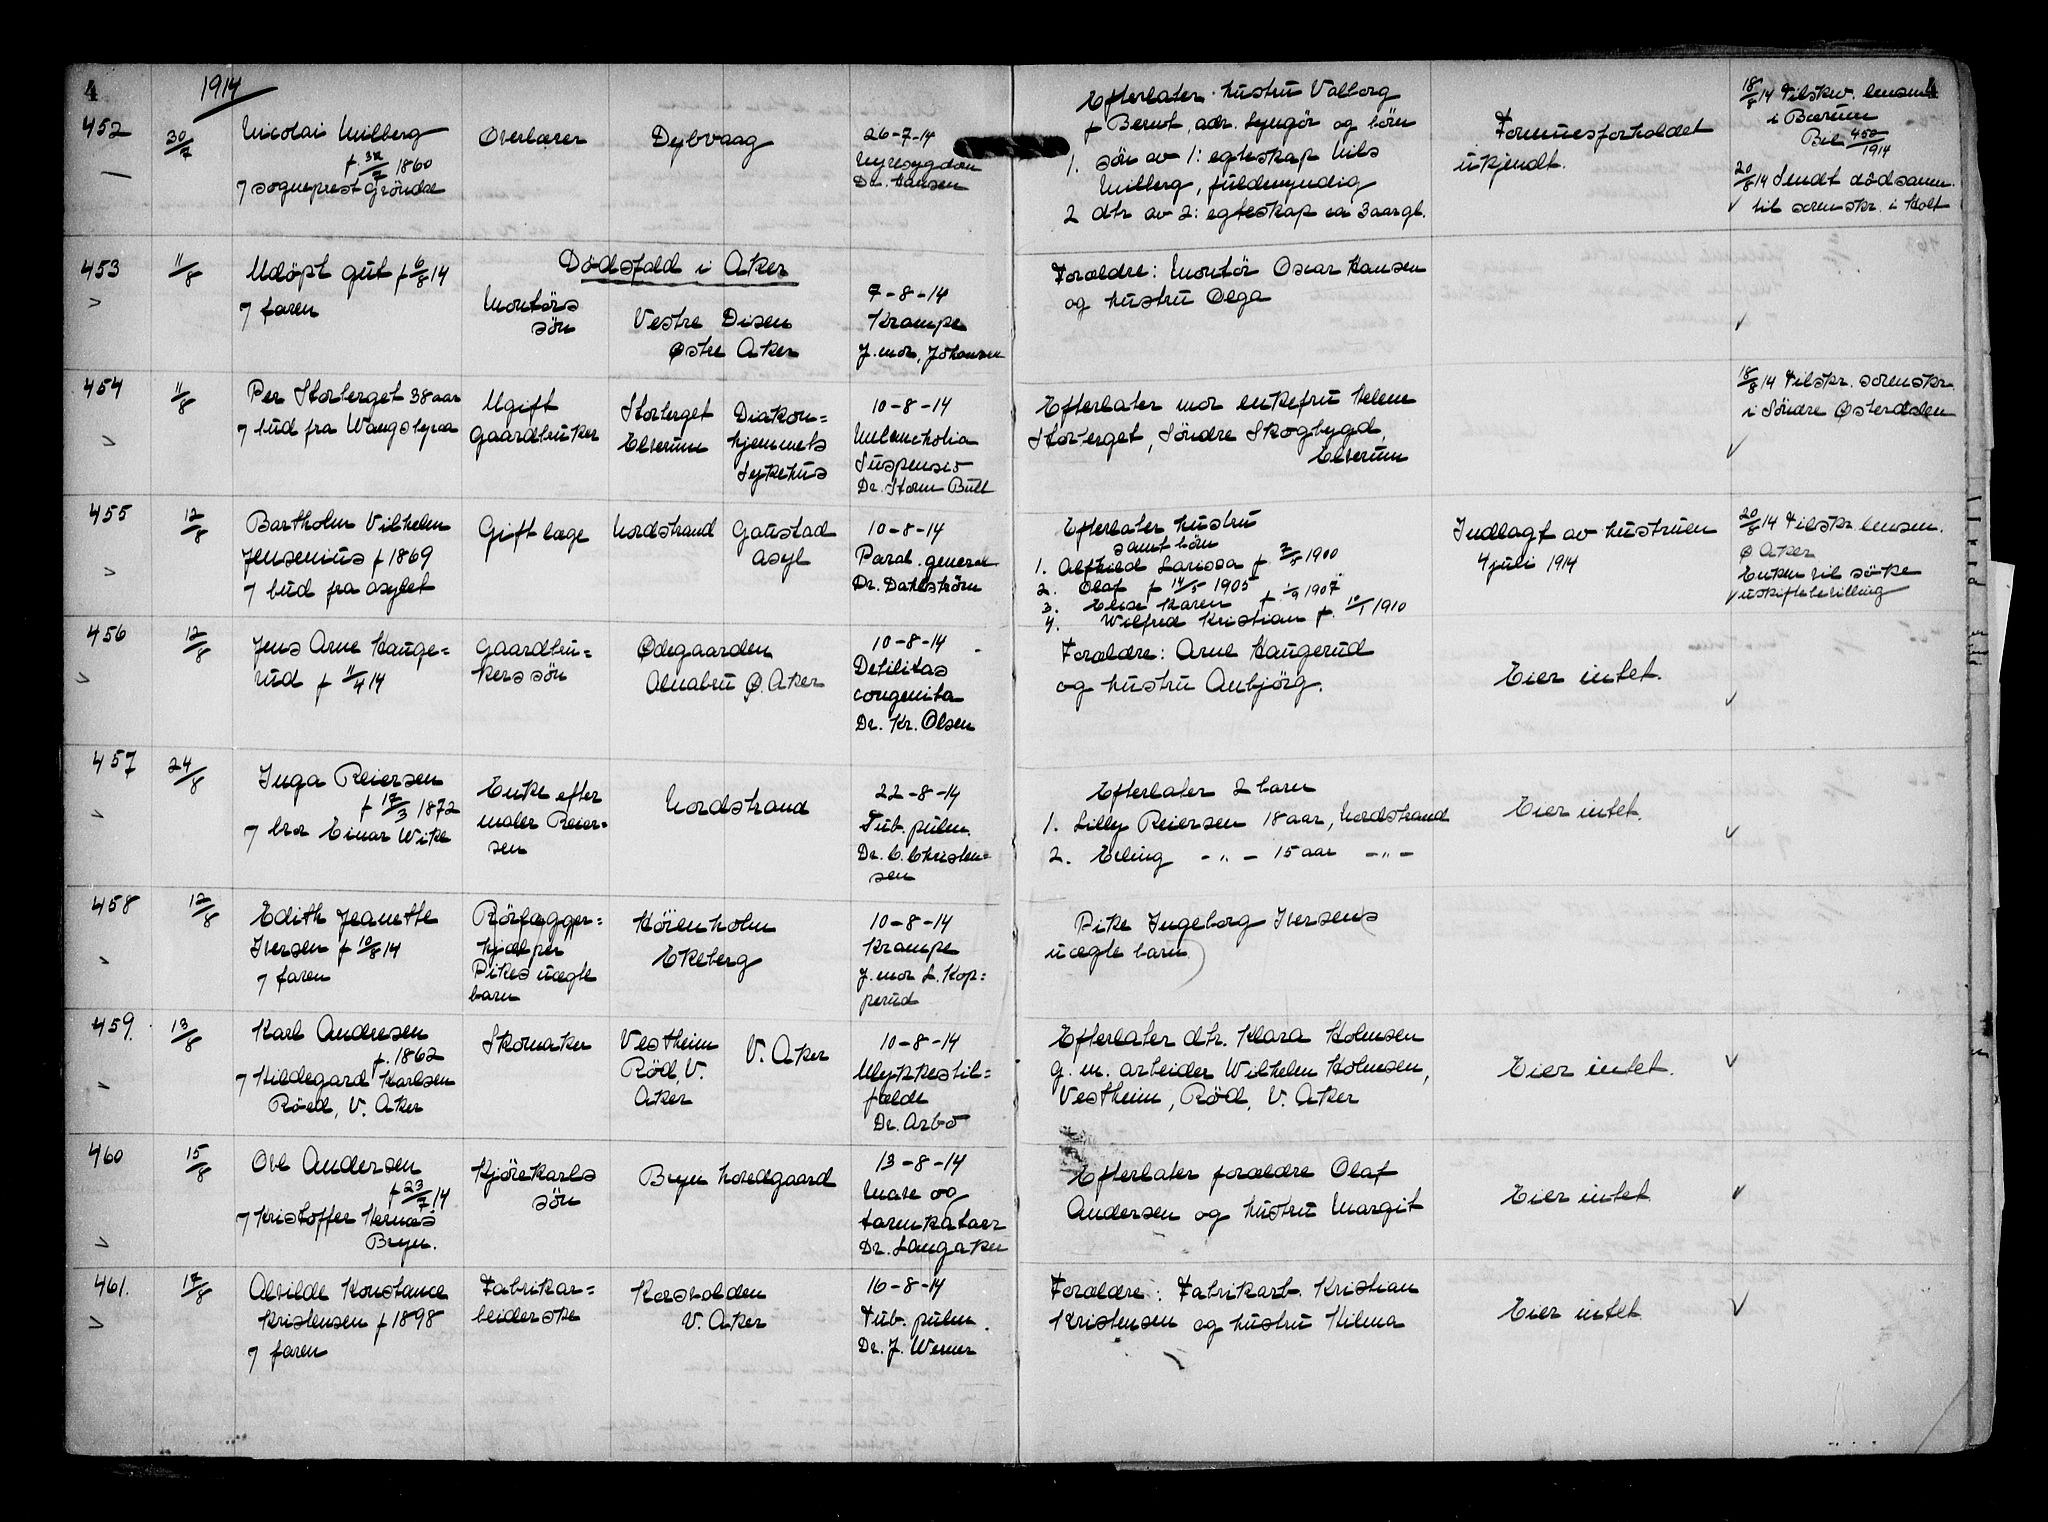 4
4
1914
452
30/7
Nicolai Milberg
f 1860
7 sogneprest Gröndse
Overlærer
Dybvaag
26-7-14
Nyresygdom
Dr. Hansen
Efterlater hustru Valborg
f Bernt, adr. Lyngör og börn
1. sön av 1: egteskap Nils
Milberg, fuldmyndig
2 dtr av 2: egteskap ca 3 aar gl.
Formuesforholdet
ukjendt.
18/8 14 Tilskr. lensm.
i Bærum
Bil 450/1914
20/8 14 Sendt dödsanm.
til sorenskr. i Holt
453
11/8
Udöpt gut f 6/8 14
7 faren
Dödsfald i Aker
Montörs
sön
Vestre Disen
Østre Aker
7-8-14
Krampe
J.mor, Johansen
Forældre: Montör Oscar Hansen
og hustru Olga
454
11/8
Per Storberget 38 aar
7 bud fra Wangs byraa
Ugift
Gaardbruker
Storberget
Elverum
Diakon=
hjemmets
Sykehus
10-8-14
Melancholia
Suspensio
Dr. Storm Bull
Efterlater mor enkefru Helene
Storberget, Söndre Skogbygd
Elverum
18/8 14 Tilskr. sorenskr
i Söndre Østerdalen
455
12/8
Bartholm Vilhelm
Jensenius f 1869
7 bud fra asylet
Gift læge
Nordstrand
Gaustad
asyl
10-8-14
Paral. general
Dr. Dahlström
Efterlater hustru
samt börn
1. Alfhild Larissa f 2/5 1900
2. Olaf f 14/5 1905
3. Else Karen f 1/9 1907
4. Wilfred Kristian f. 10/1 1910
Indlagt av hustruen
4 juli 1914
20/8 14 Tilskr lensm.
Ø Aker
Enken vil söke
uskiftebevilling
456
12/8
Jens Arne Hauge=
rud f 11/4 14
Gaardbru=
kers sön
Ødegaarden
Alnabru Ø. Aker
10-8-14
Debilitas
congenita
Dr. Kr. Olsen
Forældre: Arne Haugerud
og hustru Anbjörg.
Eier intet.
457
24/8
Inga Reiersen
f 17/3 1872
7 bror Einar Wik
Enke efter
maler Reier=
sen
Nordstrand
22-8-14
Tub. pulm.
Dr. C. Christen=
sen
Efterlater 2 barn
1. Lilly Reiersen 18 aar, Nordstrand
2. Erling -"- 15 aar -"-
Eier intet.
458
12/8
Edith Jeanette
Iversen f 10/8 14
7 faren
Rörlægger=
hjælper
Pikes uægte
barn
Körenholm
Ekeberg
10-8-14
Krampe
J.mor L. Kop=
perud
Pike Ingeborg Iversens
uægte barn
459.
13/8
Karl Andersen
f. 1862
7 Hildegard Karlsen
Röed, V. Aker
Skomaker
Vestheim
Röd, V.
Aker
V. Aker
10-8-14
Ulykkestil=
fælde
Dr. Arbo
Efterlater dtr. Klara Holmsen
g.m. arbeider Wilhelm Holmsen,
Vestheim, Röd, V. Aker
Eier intet.
460
15/8
Ove Andersen
f 23/7 14
7 Kristoffer Hernæs
Bryn.
Kjörekarls
sön
Bryn hovedgaard
13-8-14
Mave og
tarmkatarr
Dr. Langaker
Efterlater forældre Olaf
Andersen og hustru Margit
Eier intet
461.
17/8
Alvilde Konstance
Kristensen f 1898
7 faren
Fabrikar=
beiderske
Korsvolden
V. Aker
16-8-14
Tub. pulm.
Dr. J. Werner
Forældre: Fabrikarb. Kristian
Kristensen og hustru Hilma
Eier intet